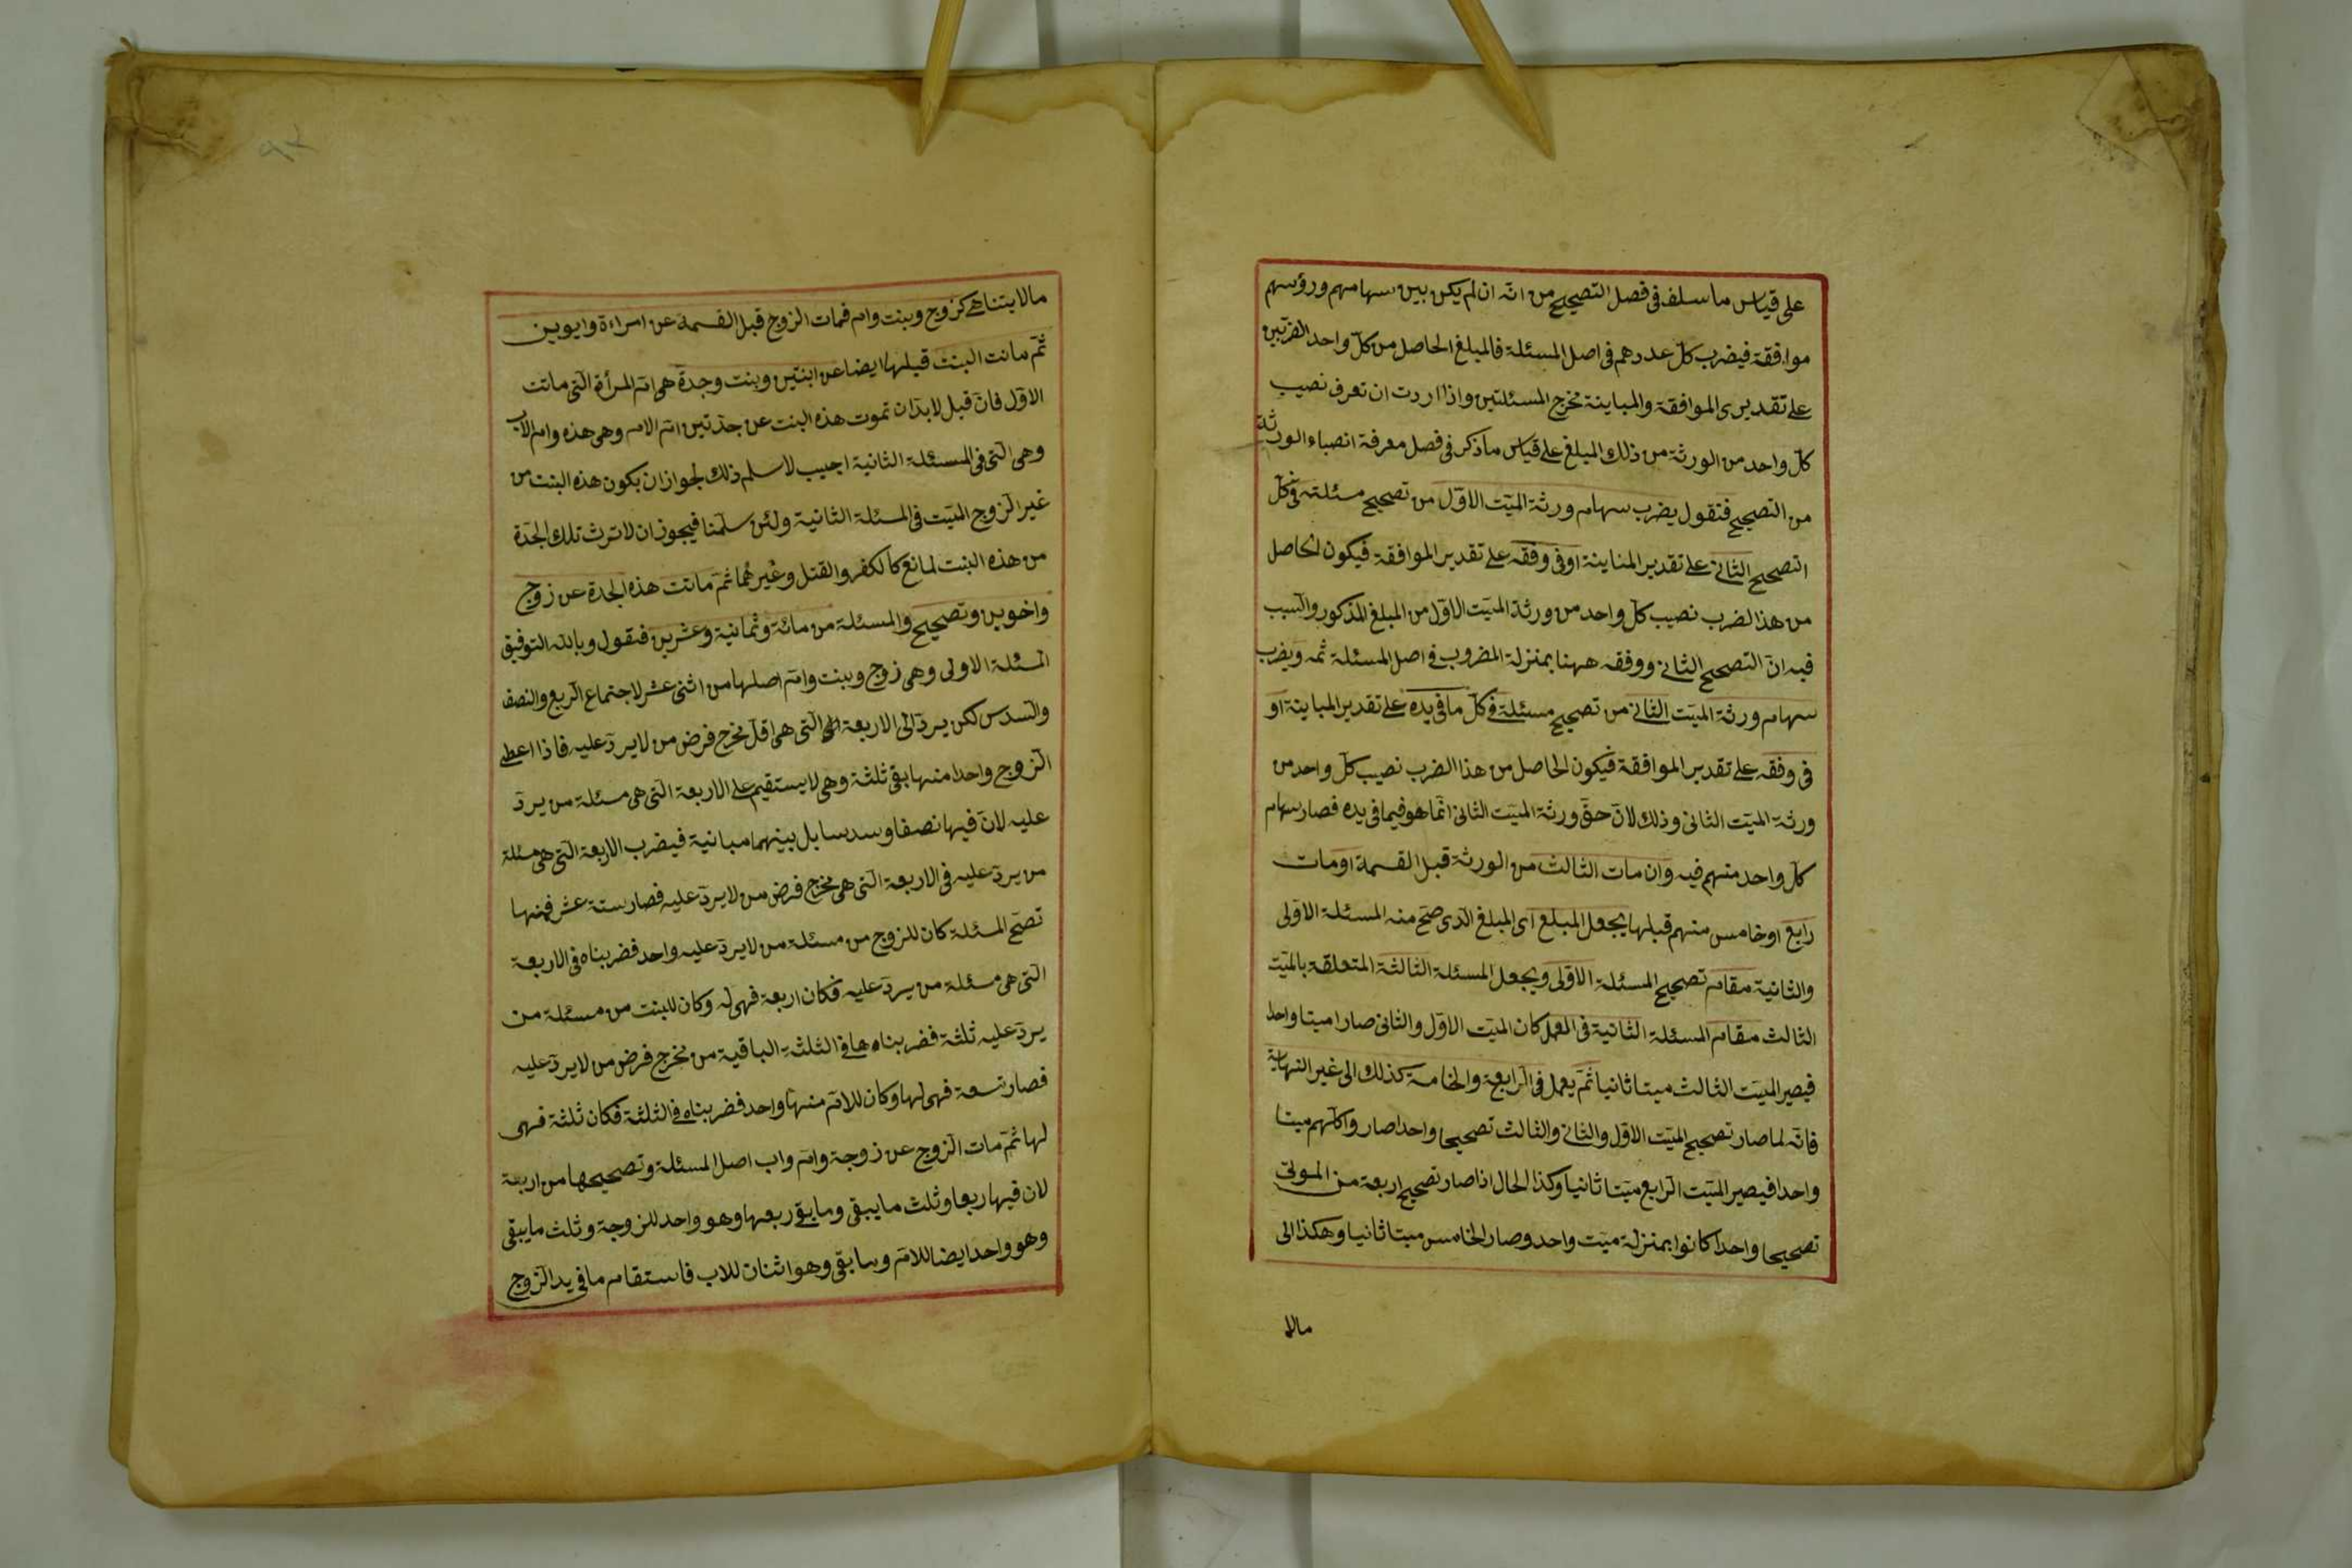 على قياس ما سلف فى فصل التصحيح من انه ان لم يكن بين سهامهم ورؤسهم
موافقة فيضرب كل عددهم فى اصل المسئلة فالمبلغ الحاصل من كلّ واحد الضربين
على تقديرى الموافقة والمباينة مخرج المسئلتين واذا اردت ان تعرف نصيب
كلّ واحد من الورثة من ذلك المبلغ على قياس ما ذكر فى فصل معرفة انصباء الورثة
من التصحيح فنقول يضرب سهام ورثة الميّت الاوّل من تصحيح مسئلته فى كلّ
التصحيح الثانى على تقدير المناينة او فى وفقه على تقدير الموافقة فيكون الحاصل
من هذا لضرب نصيب كلّ واحد من ورثة الميّت الاوّل من المبلغ المذكور والسبب
فيه انّ التصحيح الثانى ووفقه ههنا بمنزلة المضروب فى اصل المسئلة ثمه ويضرب
سهام ورثة الميّت الثانى من تصحيح مسئلة فى كلّ ما فى يده على تقدير المباينة او
فى وفقه على تقدير الموافقة فيكون الحاصل من هذا الضرب نصيب كلّ واحد من
ورثة الميّت الثانى وذلك لانّ حقّ ورثة الميّت الثانى انّما هو فيما فى يده فصار سهام
كلّ واحد منهم فيه وان مات الثالث من الورثة قبل القسمة او مات
رابع او خامس منهم قبلها يجعل المبلغ اى المبلغ الذى صحّ منه المسئلة الاولى
والثانية مقام تصحيح المسئلة الاولى ويجعل المسئلة الثالثة المتعلقة بالميّت
الثالث مقام المسئلة الثانية فى العمل كان الميّت الاوّل والثانى صارا ميتا واحدا
فيصير الميّت الثالث ميتا ثانيا ثمّ يعمل فى الرابعة والخامسة كذلك الى غير النهاية
فانّه لما صار تصحيح الميّت الاوّل والثانى والثالث تصحيحا واحدا صار واكلّهم ميتا
واحدا فيصير الميّت الرابع ميّتا ثانيا وكذا الحال اذا صار تصحيح اربعة من الموتى
تصحيحا واحدا كانوا بمنزلة ميّت واحد وصار الخامس ميتا ثانيا وهكذا الى
مالا
٩٢
مالا يتناهى كزوج وبنت وام فمات الزوج قبل القسمة عن امراءة وابوين
ثمّ ماتت البنت قبلها ايضا عن ابنتين وبنت وجدة هى امّ المرأة التى ماتت
الاوّل فانّ قيل لا بدّ ان تموت هذه البنت عن جدّتين امّ الام وهى هذه وام الاب
وهى التى فى المسئلة الثانية اجيب لا سلم ذلك لجواز ان يكون هذه البنت من
غير الزوج الميّت فى المسئلة الثانية ولئن سلّمنا فيجوز ان لا ترث تلك الجدّة
من هذه البنت لمانع كالكفر والقتل وغيرهما ثمّ ماتت هذه الجدة عن زوج
واخوين وتصحيح والمسئلة من مائة وثمانية وعشرين فنقول وبالله التوفيق
المسئلة الاولى وهى زوج وبنت وامّ اصلها من اثنى عشر لاجتماع الربع والنصف
والسدس لكن يردّ الى الاربعة التى هى اقلّ مخرج فرض من لا يردّ عليه فاذا اعطى
الزوج واحدا منها بقى ثلثة وهى لا يستقيم على الاربعة التى هى مسئلة من يردّ
عليه لانّ فيها نصفا وسدسا بل بينهما مبانية فيضرب الاربعة التى هى مسئلة
من يردّ عليه فى الاربعة التى هى مخرج فرض من لا يردّ عليه فصار ستة عشر فمنها
تصحّ المسئلة كان للزوج من مسئلة من لا يردّ عليه واحد فضربناه فى الاربعة
التى هى مسئلة من يردّ عليه فكان اربعة فهى له وكان للبنت من مسئلة من
يردّ عليه ثلثة فضربناه ها فى الثلثة الباقية من مخرج فرض من لا يردّ عليه
فصار تسعة فهى لها وكان للامّ منها واحد فضربناه فى الثلثة فكان ثلثة فهى
لها ثمّ مات الزوج عن زوجة وامّ واب اصل المسئلة وتصحيحها من اربعة
لان فيها ربعا وثلث ما يبقى وما بقى ربعها وهو واحد للزوجة وثلث ما يبقى
وهو واحد ايضا للامّ وما بقى وهو اثنان للاب فاستقام ما فى يد الزوج